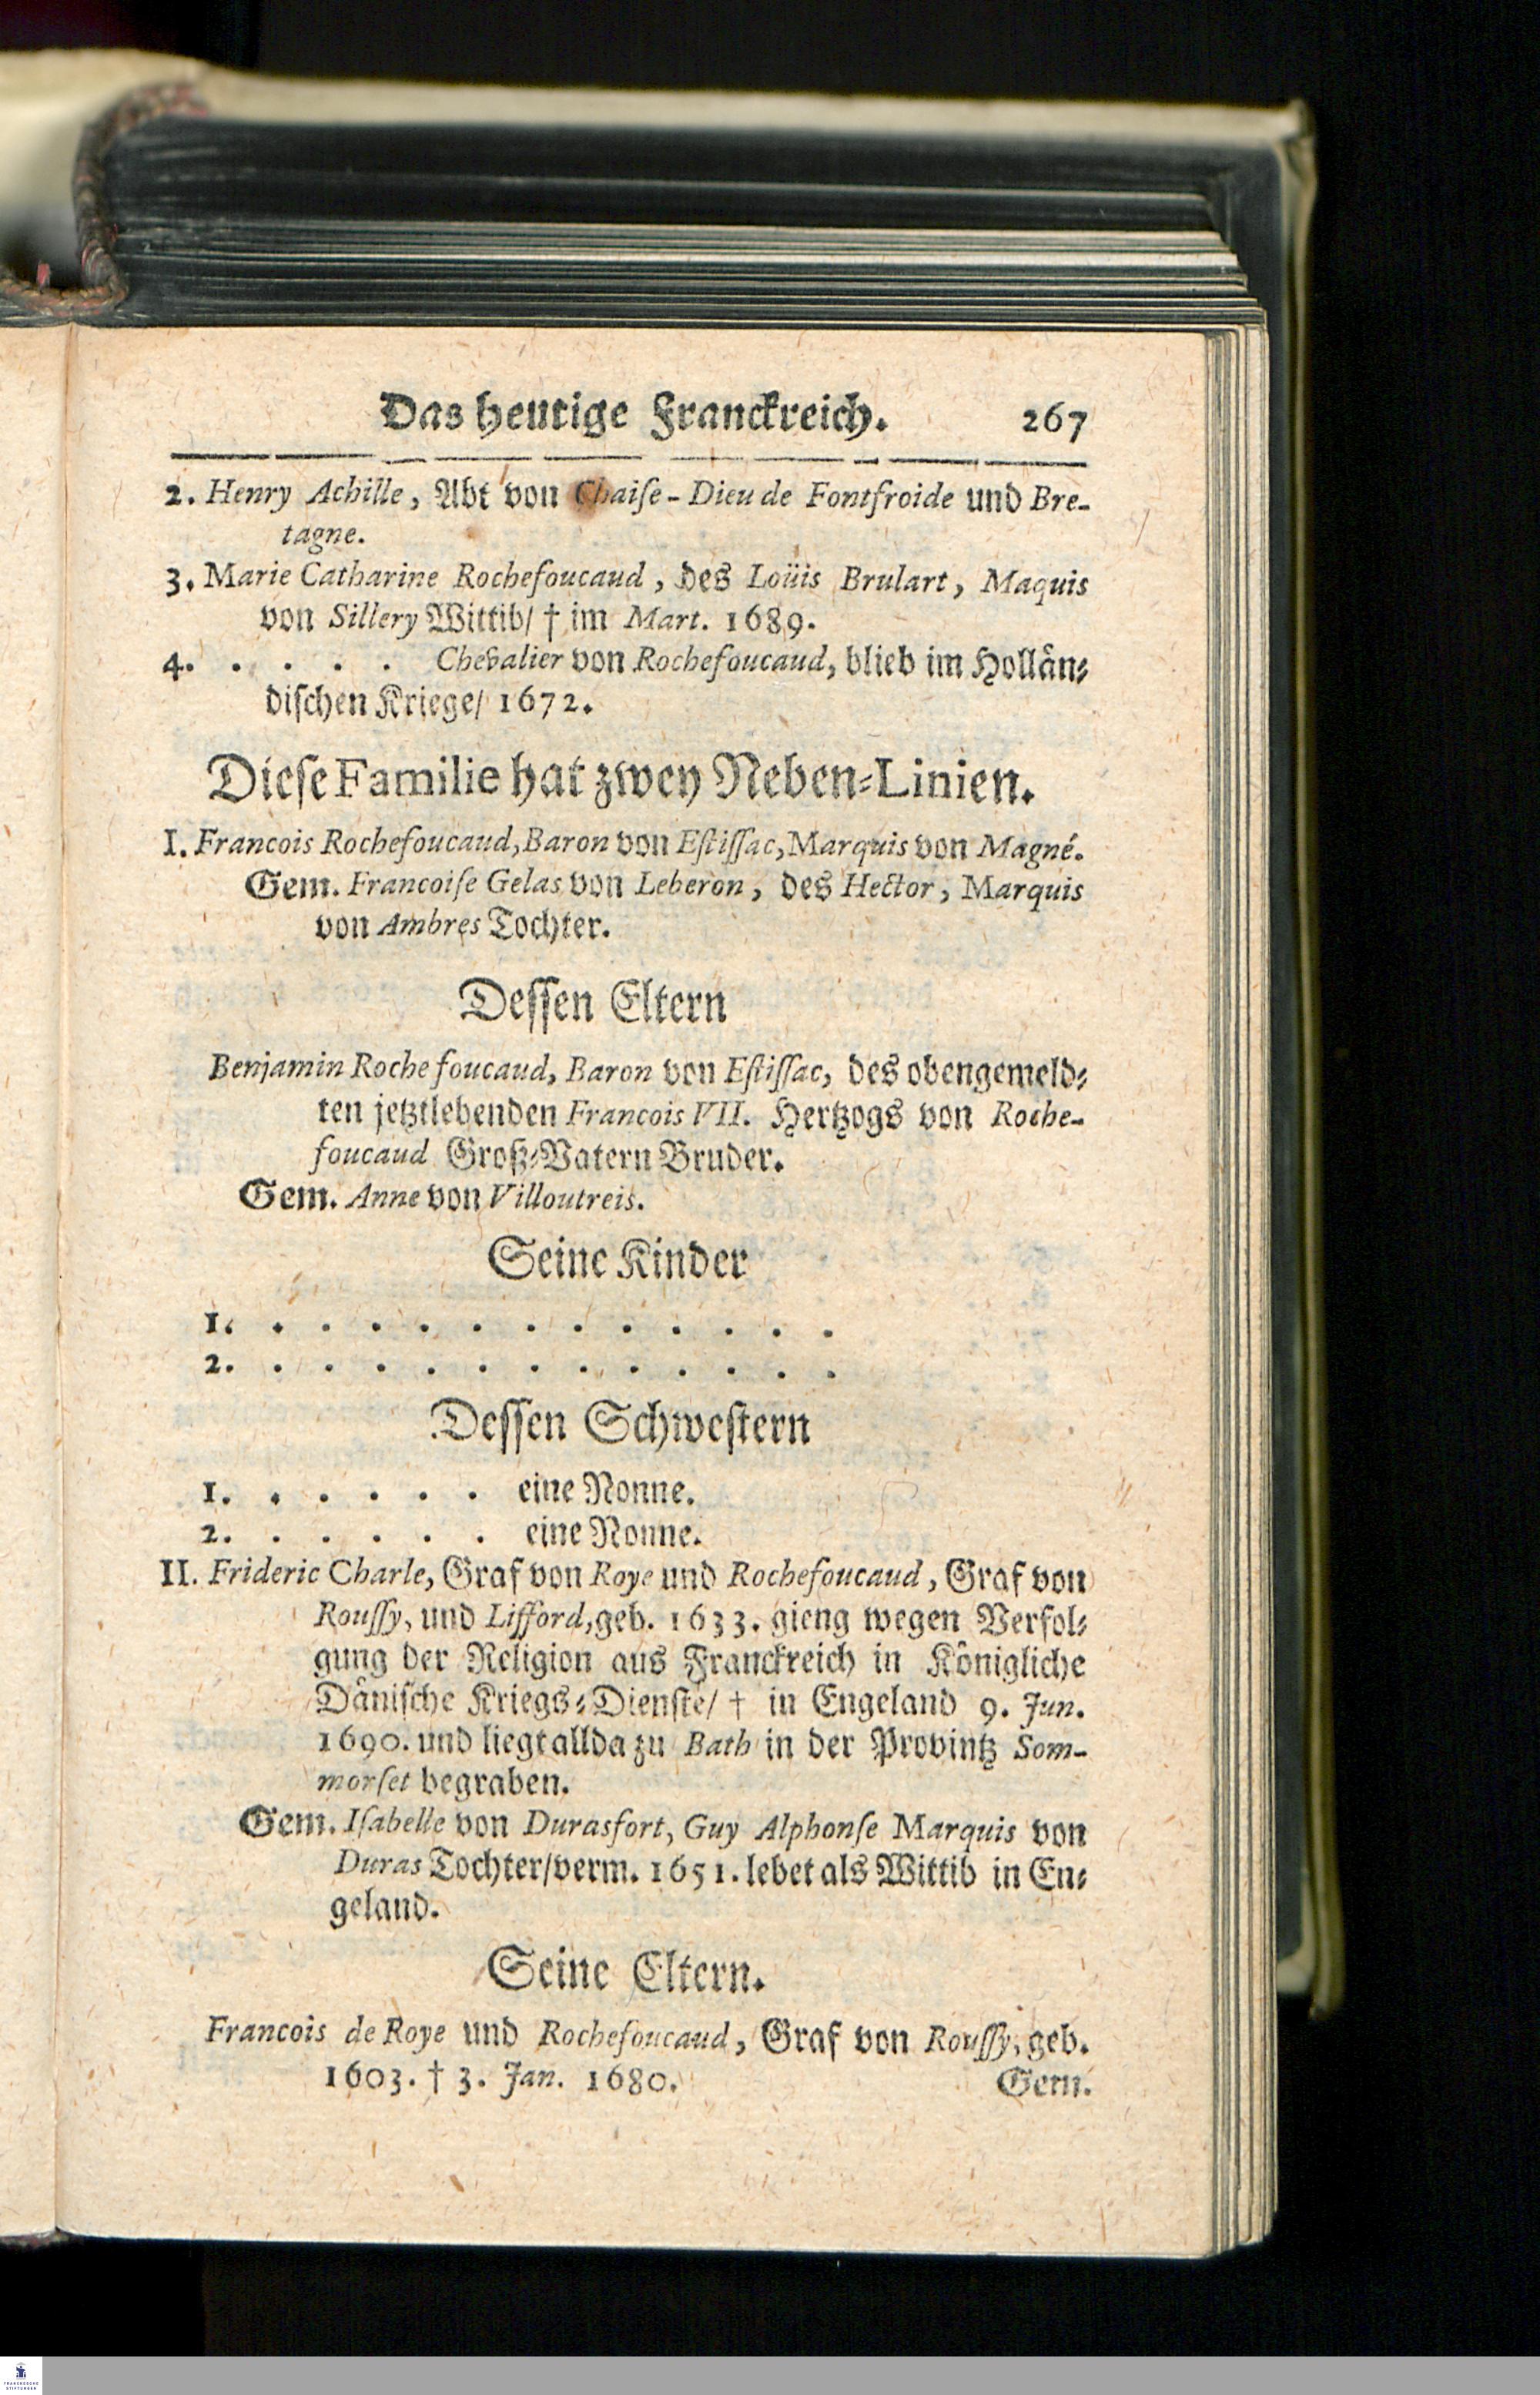 Das heutige Franckreich. 267
2. Henry Achille, Abt von Chaiſe-Dieu de Fontfroide und Bre-
tagne.
3. Marie Catharine Rochefoucaud, des Loüis Brulart, Maquis
von Sillery Wittib/ † im Mart. 1689.
4. . . . . . Chevalier von Rochefoucaud, blieb im Hollån-
diſchen Kriege/ 1672.
Dieſe Familie hat zwey Neben-Linien.
I. Francois Rochefoucaud, Baron von Eſtiſſac, Marquis von Magné.
Gem. Francoiſe Gelas von Leberon, des Hector, Marquis
von Ambres Tochter.
Deſſen Eltern
Benjamin Rochefoucaud, Baron von Eſtiſſac, des obengemeld-
ten jetztlebenden Francois VII. Hertzogs von Roche-
foucaud Groß-Vatern Bruder.
Gem. Anne von Villoutreis.
Seine Kinder
1. . . . . . . . . . . . .
2. . . . . . . . . . . . .
Deſſen Schweſtern
1. . . . . . eine Nonne.
2. . . . . . eine Nonne.
II. Frideric Charle, Graf von Roye und Rochefoucaud, Graf von
Rouſſy, und Lifford, geb. 1633. gieng wegen Verfol-
gung der Religion aus Franckreich in Kônigliche
Dåniſche Kriegs-Dienſte/ † in Engeland 9. Jun.
1690. und liegt allda zu Bath in der Provintz Som-
morſet begraben.
Gem. Iſabelle von Durasfort, Guy Alphonſe Marquis von
Duras Tochter/ verm. 1651. lebet als Wittib in En-
geland.
Seine Eltern.
Francois de Roye und Rochefoucaud, Graf von Rouſſy, geb.
1603. † 3. Jan. 1680. Gem.
FRANCKESCHE
STIFTUNGEN